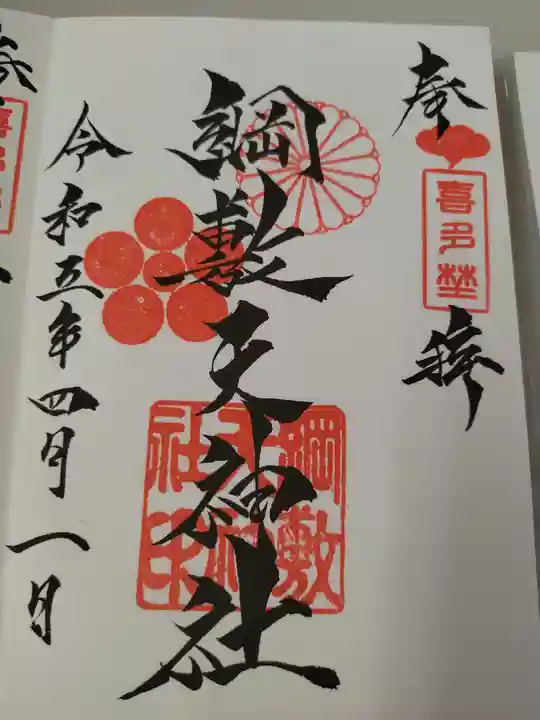 奉拝
喜多埜
綱敷天神社
綱敷天神社印
令和五年四月一日